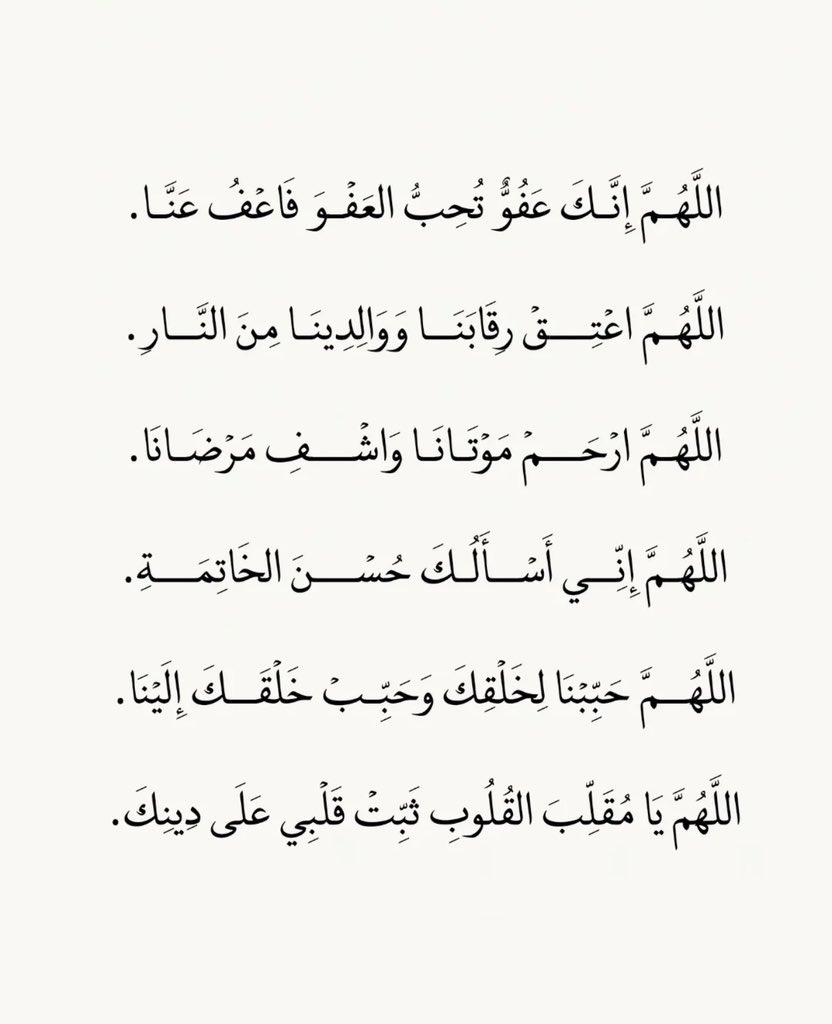 اللَّهُمَّ إِنَّكَ عَفُوٌّ تُحِبُّ العَفْوَ فَاعْفُ عَنَّا.
اللَّهُمَّ اعْتِقْ رِقَابَنَا وَوَالِدِينَا مِنَ النَّارِ.
اللَّهُمَّ ارْحَمْ مَوْتَانَا وَاشْفِ مَرْضَانَا.
اللَّهُمَّ إِنِّي أَسْأَلُكَ حُسْنَ الخَاتِمَةِ.
اللَّهُمَّ حَبِّبْنَا لِخَلْقِكَ وَحَبِّبْ خَلْقَكَ إِلَيْنَا.
اللَّهُمَّ يَا مُقَلِّبَ القُلُوبِ ثَبِّتْ قَلْبِي عَلَى دِينِكَ.